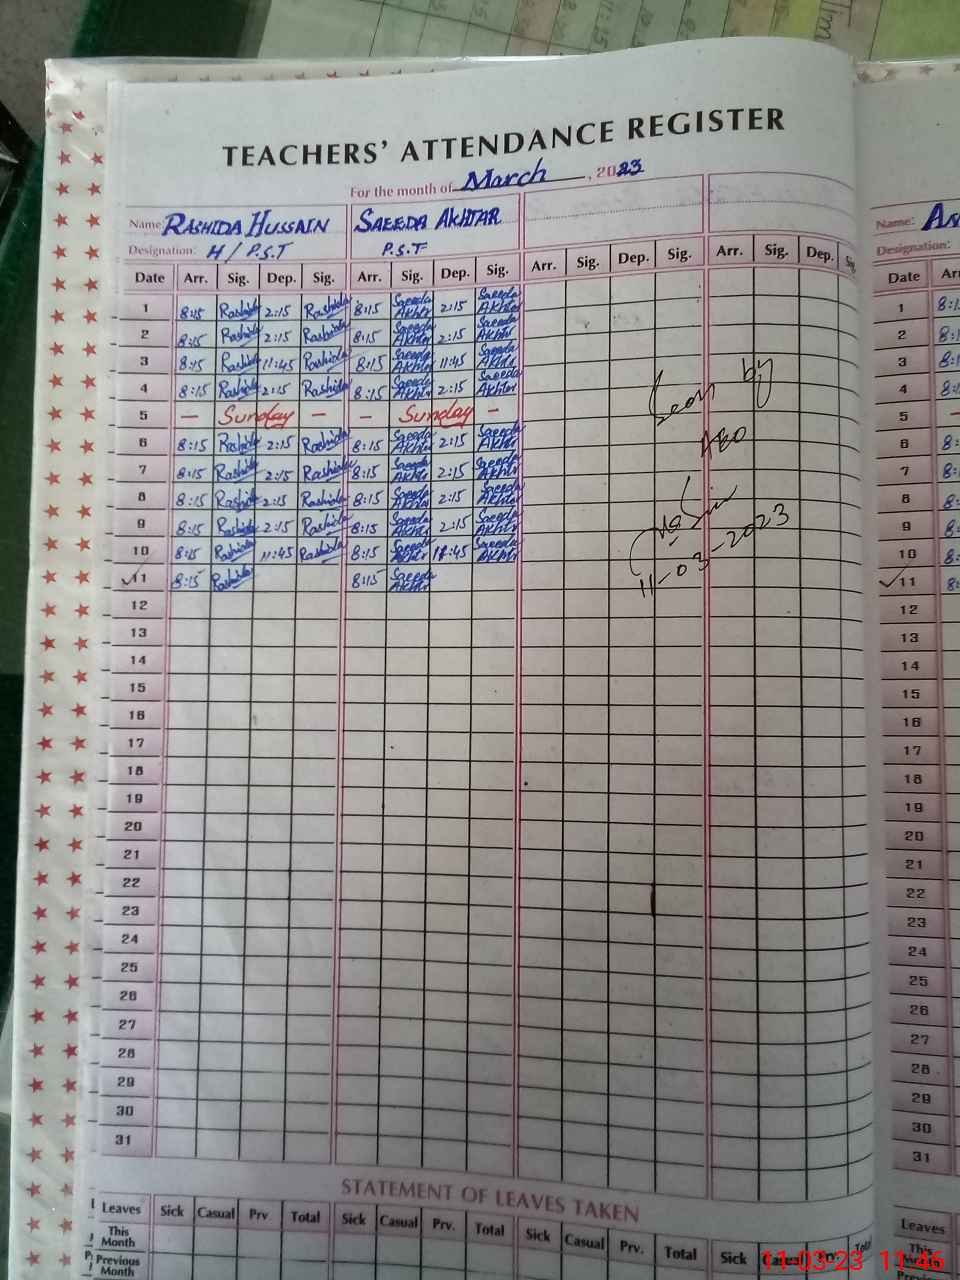 TEACHERS' ATTENDANCE REGISTER
For the month of March, 2023
Name: RASHIDA HUSSAIN SAEEDA AKHTAR Name:
Designation: H / P.S.T P.S.T Designation:
Date Arr. Sig. Dep. Sig. Arr. Sig. Dep. Sig. Arr. Sig. Dep. Sig. Arr. Sig. Dep. Date
1 8:15 Rashida 2:15 Rashida 8:15 Saeeda Akhtr 2:15 Saeeda Akhtr 1
2 8:15 Rashida 2:15 Rashida 8:15 Saeeda Akhtr 2:15 Saeeda Akhtr 2
3 8:15 Rashida 11:45 Rashida 8:15 Saeeda Akhtr 11:45 Saeeda Akhtr 3
4 8:15 Rashida 2:15 Rashida 8:15 Saeeda Akhtr 2:15 Saeeda Akhtr 4
5 – Sunday – – Sunday – 5
6 8:15 Rashida 2:15 Rashida 8:15 Saeeda Akhtr 2:15 Saeeda Akhtr 6
7 8:15 Rashida 2:15 Rashida 8:15 Saeeda Akhtr 2:15 Saeeda Akhtr 7
8 8:15 Rashida 2:15 Rashida 8:15 Saeeda Akhtr 2:15 Saeeda Akhtr 8
9 8:15 Rashida 2:15 Rashida 8:15 Saeeda Akhtr 2:15 Saeeda Akhtr 9
10 8:15 Rashida 11:45 Rashida 8:15 Saeeda Akhtr 11:45 Saeeda Akhtr 10
11 8:15 Rashida 8:15 Saeeda Akhtr 11
Seen by
AEO
11-03-2023
12 12
13 13
14 14
15 15
16 16
17 17
18 18
19 19
20 20
21 21
22 22
23 23
24 24
25 25
26 26
27 27
28 28
29 29
30 30
31 31
STATEMENT OF LEAVES TAKEN
Leaves Sick Casual Prv. Total Sick Casual Prv. Total Sick Casual Prv. Total Sick Casual Prv. Total Leaves
This Month
Previous Month
11-03-23 11:46